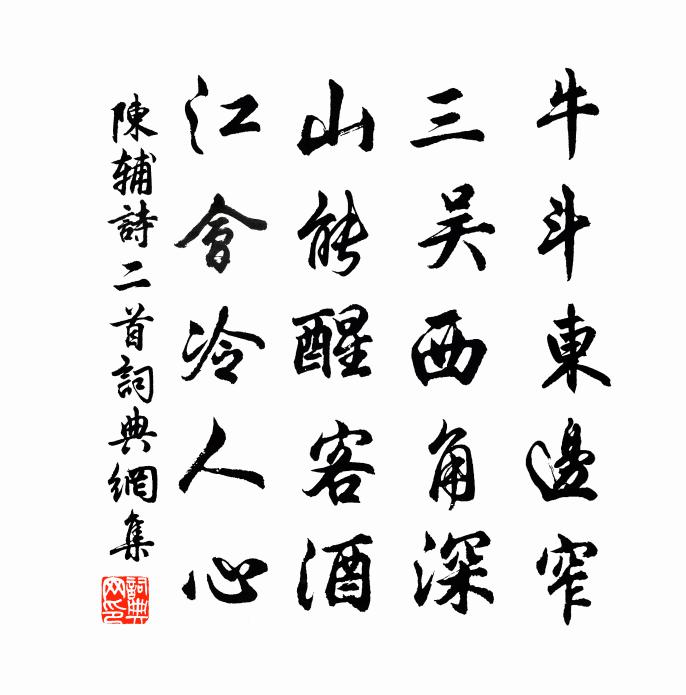 牛斗東邊窄
三吴西角深
山能醒客酒
江會冷人心
陳辅詩二首詞典網集
詞典網印